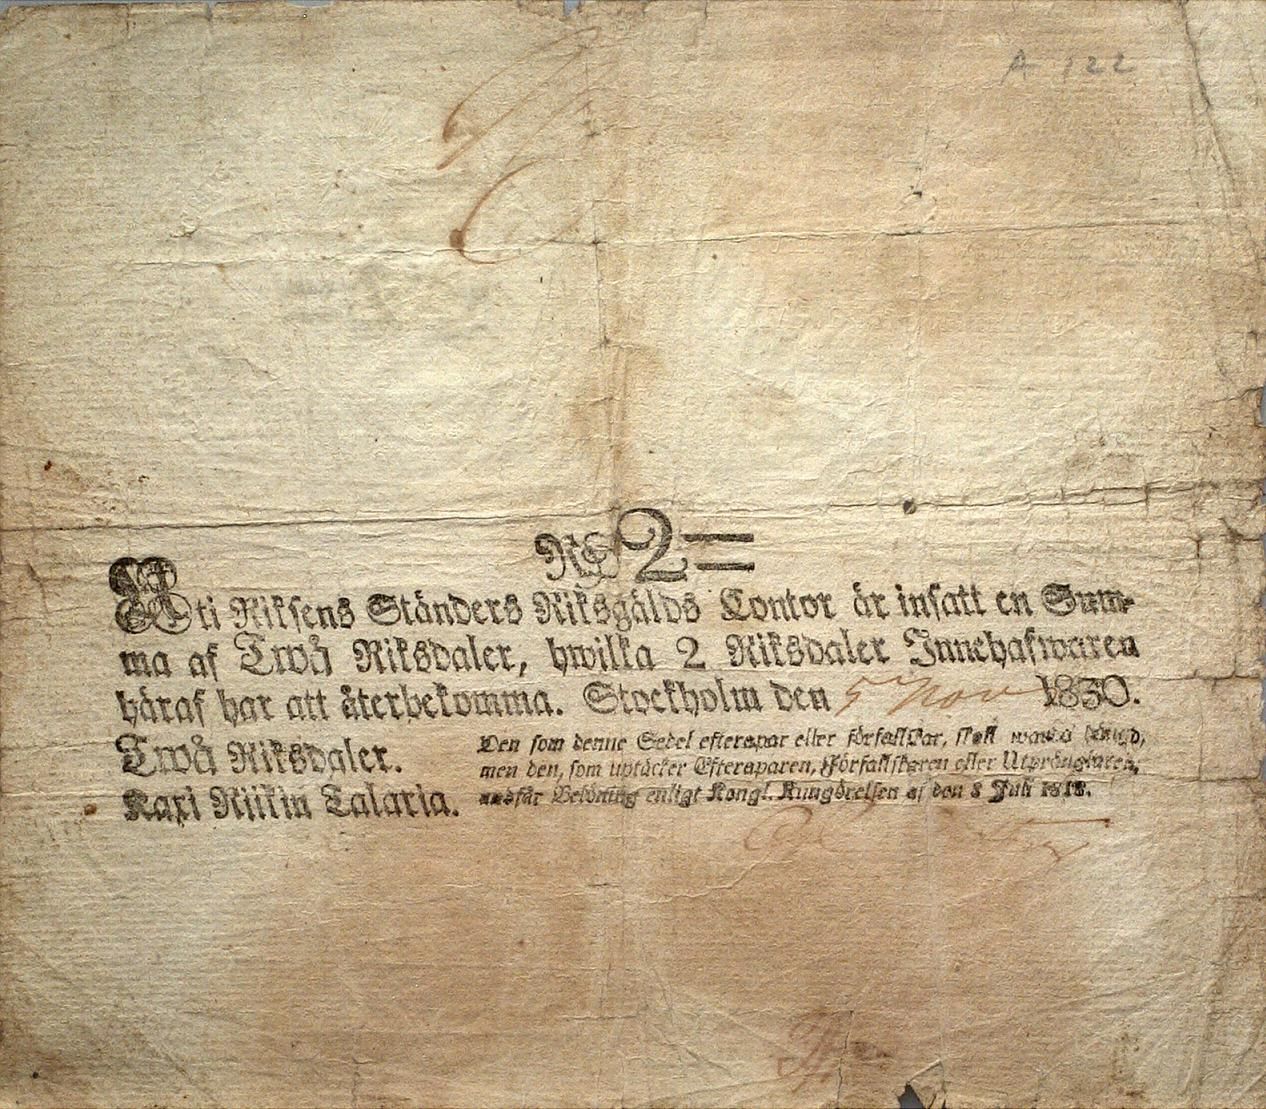 A 122
RG 2=
Uti Riksens Ständers Riksgälds Contor är insatt en Sum-
ma af Twå Riksdaler, hwilka 2 Riksdaler Innehafwaren
häraf har att återbekomma. Stockholm den 5 Nov 1830.
Twå Riksdaler.
Kaxi Riikin Talaria.
Den som denne Sedel efterapar eller förfalskar, skall warda hängd,
men den, som uptäcker Efteraparen, Förfalskaren eller Utprånglaren,
undfår Belöning enligt Kongl. Kungörelsen af den 8 Juli 1818.